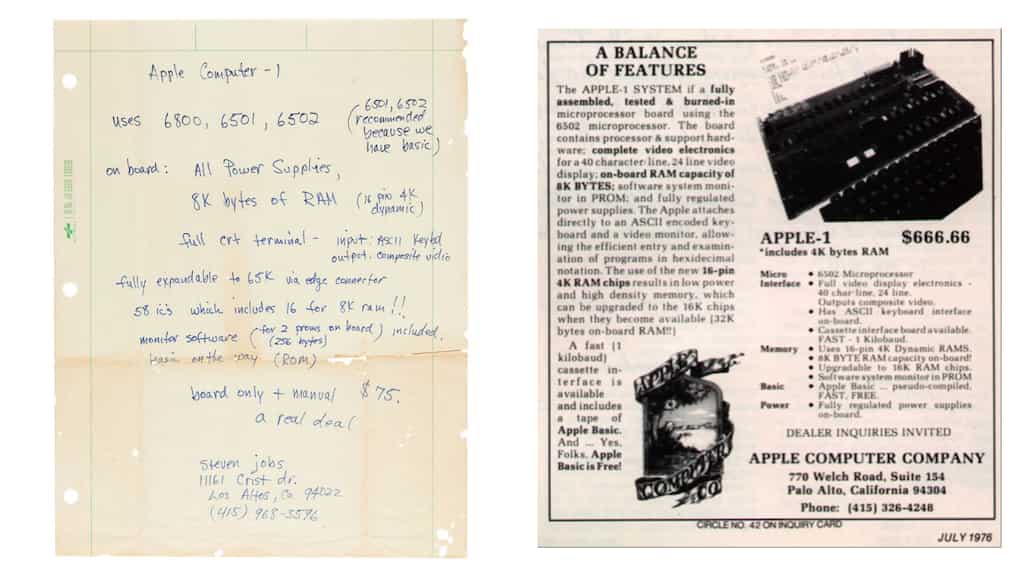 Apple Computer - 1
uses 6800, 6501, 6502
(6501, 6502
recommended
because we
have basic)
on board: All Power Supplies,
8K bytes of RAM (16 pin 4K
dynamic)
full crt terminal - input: ASCII Keybd
output: composite video
fully expandable to 65K via edge connector
58 ic's which includes 16 for 8K ram!!
monitor software (for 2 proms on board) included.
(256 bytes)
basic on the way (ROM)
board only + manual $75.
a real deal
Steven jobs
11161 Crist dr.
Los Altos, Ca 94022
(415) 968-3596
A BALANCE
OF FEATURES
The APPLE-1 SYSTEM if a fully
assembled, tested & burned-in
microprocessor board using the
6502 microprocessor. The board
contains processor & support hard-
ware; complete video electronics
for a 40 character/line, 24 line video
display; on-board RAM capacity of
8K BYTES; software system moni-
tor in PROM; and fully regulated
power supplies. The Apple attaches
directly to an ASCII encoded key-
board and a video monitor, allow-
ing the efficient entry and examin-
ation of programs in hexidecimal
notation. The use of the new 16-pin
4K RAM chips results in low power
and high density memory, which
can be upgraded to the 16K chips
when they become available [32K
bytes on-board RAM!!]
A fast [1
kilobaud]
cassette in-
terface is
available
and includes
a tape of
Apple Basic.
And ... Yes,
Folks, Apple
Basic is Free!
APPLE
COMPUTER
CO
APPLE-1 $666.66
*includes 4K bytes RAM
Micro • 6502 Microprocessor
Interface • Full video display electronics -
40 char/line, 24 line.
Outputs composite video.
• Has ASCII keyboard interface
on-board.
• Cassette interface board available.
FAST - 1 Kilobaud.
Memory • Uses 16-pin 4K Dynamic RAMS.
• 8K BYTE RAM capacity on-board!
• Upgradable to 16K RAM chips.
• Software system monitor in PROM
Basic • Apple Basic ... pseudo-compiled,
FAST, FREE.
Power • Fully regulated power supplies
on-board.
DEALER INQUIRIES INVITED
APPLE COMPUTER COMPANY
770 Welch Road, Suite 154
Palo Alto, California 94304
Phone: (415) 326-4248
CIRCLE NO. 42 ON INQUIRY CARD
JULY 1976